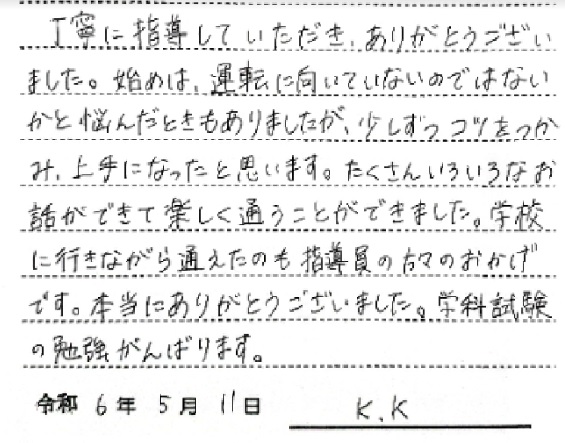 丁寧に指導していただき、ありがとうござい
ました。始めは、運転に向いていないのではない
かと悩んだときもありましたが、少しずつコツをつか
み、上手になったと思います。たくさんいろいろなお
話ができて楽しく通うことができました。学校
に行きながら通えたのも指導員の方々のおかげ
です。本当にありがとうございました。学科試験
の勉強がんばります。
令和 6年 5月 11日 K.K